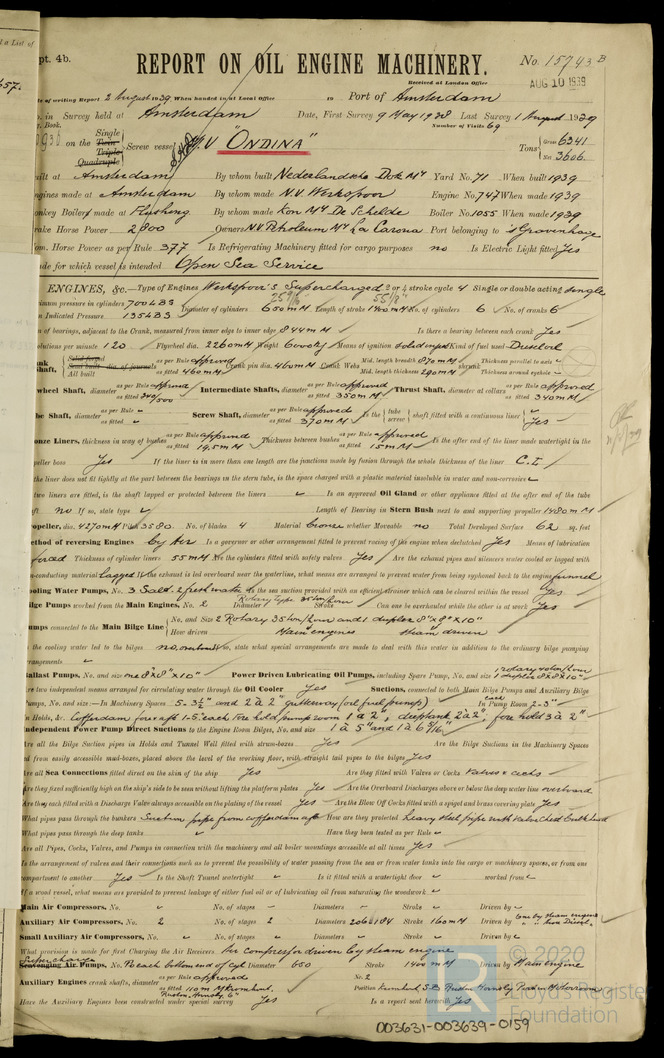 pt. 4b.
REPORT ON OIL ENGINE MACHINERY.
No. 15743 B
Received at London Office
AUG 10 1939
of writing Report 2 August 1939 When handed in at Local Office
Port of Amsterdam
in Survey held at Amsterdam Date, First Survey 9 May 1938 Last Survey 1 August 1939
Book. Number of Visits 69
on the Single Twin Triple Quadruple Screw vessel M.V "ONDINA" Tons Gross 6341 Net 3606
built at Amsterdam By whom built Nederlandsche Dok My Yard No. 71 When built 1939
Engines made at Amsterdam By whom made N.V. Werkspoor Engine No. 747 When made 1939
Donkey Boilers made at Flushing By whom made Kon My De Schelde Boiler No. 1055 When made 1939
Brake Horse Power 2800 Owners N.V. Petroleum My La Corona Port belonging to 's Gravenhage
Nom. Horse Power as per Rule 377 Is Refrigerating Machinery fitted for cargo purposes no Is Electric Light fitted Yes
Trade for which vessel is intended Open Sea Service
ENGINES, &c.—Type of Engines Werkspoor's Supercharged 2 or 4 stroke cycle 4 Single or double acting Single
Maximum pressure in cylinders 700 LBS Diameter of cylinders 650 mM Length of stroke 1400 mM No. of cylinders 6 No. of cranks 6
Indicated Pressure 135 LBS
of bearings, adjacent to the Crank, measured from inner edge to inner edge 844 mM Is there a bearing between each crank Yes
Revolutions per minute 120 Flywheel dia. 2260 mM Weight Means of ignition Solid input Kind of fuel used Diesel oil
Crank Shaft, Solid forged Semi built dia. of journals All built as per Rule approved as fitted 460 mM Crank pin dia. 460 mM Crank Webs Mid. length breadth 870 mM Mid. length thickness 290 mM shrunk Thickness parallel to axis Thickness around eyehole
Flywheel Shaft, diameter as per Rule approved as fitted 340/500 Intermediate Shafts, diameter as per Rule approved as fitted 350 mM Thrust Shaft, diameter at collars as per Rule approved as fitted 340 mM
Tube Shaft, diameter as per Rule as fitted Screw Shaft, diameter as per Rule approved as fitted 370 mM Is the tube screw shaft fitted with a continuous liner Yes
Bronze Liners, thickness in way of bushes as per Rule approved as fitted 19,5 mM Thickness between bushes as per Rule approved as fitted 15 mM Is the after end of the liner made watertight in the
propeller boss Yes If the liner is in more than one length are the junctions made by fusion through the whole thickness of the liner C.L
the liner does not fit tightly at the part between the bearings in the stern tube, is the space charged with a plastic material insoluble in water and non-corrosive
two liners are fitted, is the shaft lapped or protected between the liners Is an approved Oil Gland or other appliance fitted at the after end of the tube
shaft no If so, state type Length of Bearing in Stern Bush next to and supporting propeller 1480 mM
Propeller, dia. 4270 mM Pitch 3580. No. of blades 4 Material bronze whether Moveable no Total Developed Surface 62 sq. feet
Method of reversing Engines by Air Is a governor or other arrangement fitted to prevent racing of the engine when declutched Yes Means of lubrication
forced Thickness of cylinder liners 55 mM Are the cylinders fitted with safety valves Yes Are the exhaust pipes and silencers water cooled or lagged with
non-conducting material lagged If the exhaust is led overboard near the waterline, what means are arranged to prevent water from being syphoned back to the engine funnel
Cooling Water Pumps, No. 3 Salt. 2 fresh water Is the sea suction provided with an efficient strainer which can be cleared within the vessel Yes
Bilge Pumps worked from the Main Engines, No. 2 Diameter Rotary type 35 ton/hour Stroke Can one be overhauled while the other is at work Yes
Pumps connected to the Main Bilge Line No. and Size 2 Rotary 35 ton/hour and 1 duplex 8"x8"x10"
How driven Main engines steam driven
Is the cooling water led to the bilges no, overboard If so, state what special arrangements are made to deal with this water in addition to the ordinary bilge pumping
arrangements
Ballast Pumps, No. and size one 8"x8"x10" Power Driven Lubricating Oil Pumps, including Spare Pump, No. and size 1 rotary 40 ton/hour 1 duplex 8x8x10"
Are two independent means arranged for circulating water through the Oil Cooler Yes Suctions, connected to both Main Bilge Pumps and Auxiliary Bilge
Pumps, No. and size:—In Machinery Spaces 5-3½" and 2 à 2" gutterway (oil fuel pumps) In Pump Room each 2-3"
In Holds, &c. Cofferdam fore & aft 1-5" each Fore hold pump room 1 à 2", deeptank 2 à 2", fore hold 3 à 2"
Independent Power Pump Direct Suctions to the Engine Room Bilges, No. and size 1 à 5" and 1 à 6 5/16"
Are all the Bilge Suction pipes in Holds and Tunnel Well fitted with strum-boxes Yes Are the Bilge Suctions in the Machinery Spaces
led from easily accessible mud-boxes, placed above the level of the working floor, with straight tail pipes to the bilges Yes
Are all Sea Connections fitted direct on the skin of the ship Yes Are they fitted with Valves or Cocks Valves & cocks
Are they fixed sufficiently high on the ship's side to be seen without lifting the platform plates Yes Are the Overboard Discharges above or below the deep water line overboard
Are they each fitted with a Discharge Valve always accessible on the plating of the vessel Yes Are the Blow Off Cocks fitted with a spigot and brass covering plate Yes
What pipes pass through the bunkers Suction pipe from cofferdam aft How are they protected Heavy steel pipe with valve ched bulkhead
What pipes pass through the deep tanks Have they been tested as per Rule
Are all Pipes, Cocks, Valves, and Pumps in connection with the machinery and all boiler mountings accessible at all times Yes
Is the arrangement of valves and their connections such as to prevent the possibility of water passing from the sea or from water tanks into the cargo or machinery spaces, or from one
compartment to another Yes Is the Shaft Tunnel watertight Is it fitted with a watertight door worked from
If a wood vessel, what means are provided to prevent leakage of either fuel oil or of lubricating oil from saturating the woodwork
Main Air Compressors, No. No. of stages Diameters Stroke Driven by
Auxiliary Air Compressors, No. 2 No. of stages 2 Diameters 206 x 184 Stroke 160 mM Driven by one by steam engine
Small Auxiliary Air Compressors, No. No. of stages Diameters Stroke Driven by
What provision is made for first Charging the Air Receivers Air compressor driven by steam engine
Supercharge Scavenging Air Pumps, No. 6 each bottom end of cyl Diameter 650 Stroke 1400 mM Driven by Main engine
Auxiliary Engines crank shafts, diameter as per Rule approved as fitted 110 mM Kromhout. Ruston Hornsby 6" No. 2 Position
Have the Auxiliary Engines been constructed under special survey Yes Is a report sent herewith Yes
© 2020
Lloyd's Register
Foundation
003631-003639-0159